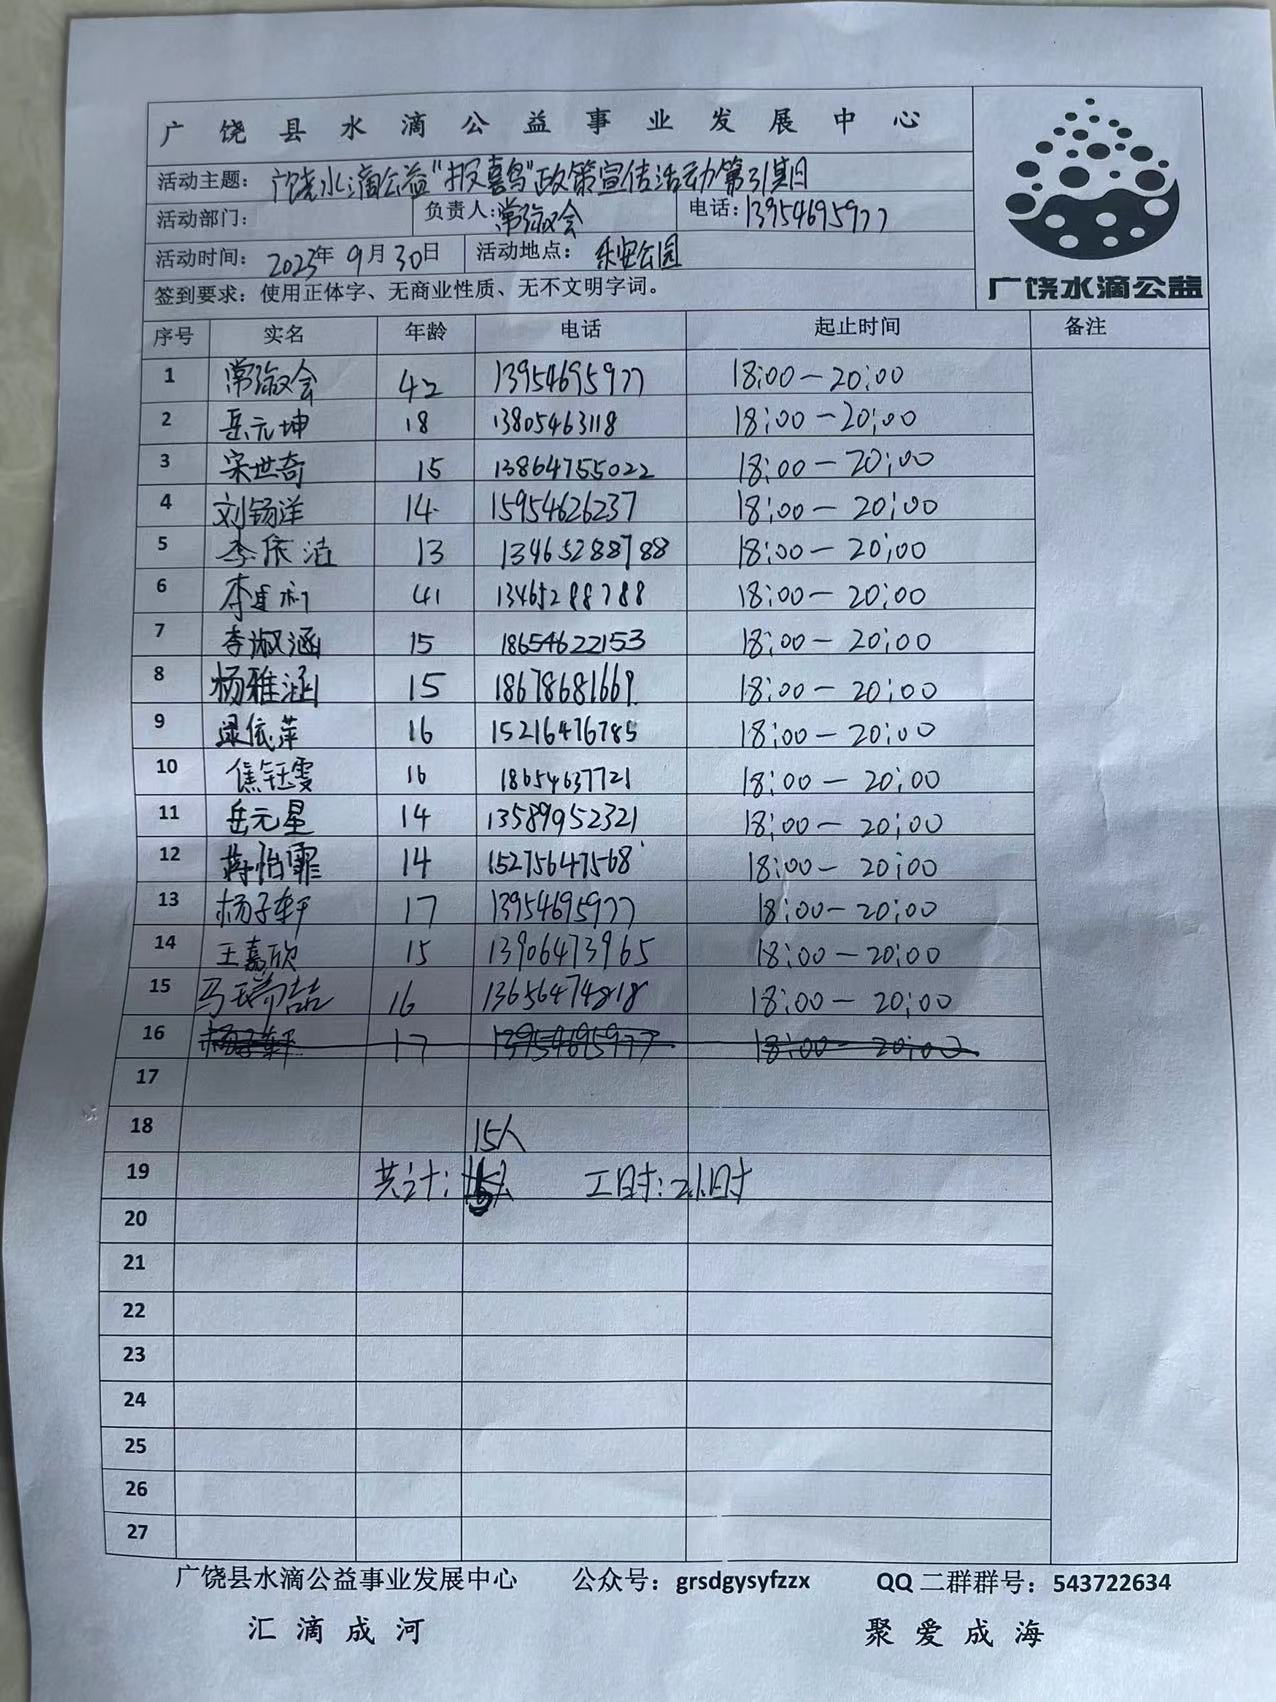 广饶县水滴公益事业发展中心
活动主题：广饶水滴公益“报喜鸟”政策宣传活动第31期
活动部门： 负责人：常淑会 电话：13954695977
活动时间：2023年9月30日 活动地点：乐安公园
签到要求：使用正体字、无商业性质、无不文明字词。
广饶水滴公益
序号 实名 年龄 电话 起止时间 备注
1 常淑会 42 13954695977 18:00-20:00
2 岳元坤 18 13805463118 18:00-20:00
3 宋世奇 15 13864755022 18:00-20:00
4 刘锡洋 14 15954626237 18:00-20:00
5 李依洁 13 13465288788 18:00-20:00
6 李建利 41 13465288788 18:00-20:00
7 李淑涵 15 18654622153 18:00-20:00
8 杨雅涵 15 18678681669 18:00-20:00
9 梁依萍 16 15216476785 18:00-20:00
10 焦钰雯 16 18654637721 18:00-20:00
11 岳元星 14 13589952321 18:00-20:00
12 蒋怡霏 14 15275647568 18:00-20:00
13 杨子轩 17 13954695977 18:00-20:00
14 王嘉欣 15 13906473965 18:00-20:00
15 马瑞喆 16 13656474818 18:00-20:00
16 杨子轩 17 13954695977 18:00-20:00
17
18 15人
19 共计： 工时：2小时
20
21
22
23
24
25
26
27
广饶县水滴公益事业发展中心 公众号：grsdgysyfzzx QQ二群群号：543722634
汇滴成河 聚爱成海